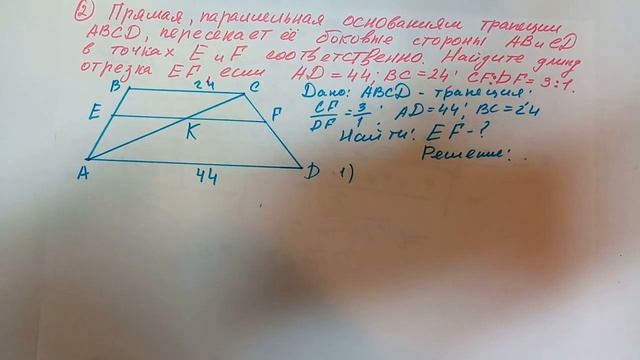 ② Прямая, параллельная основаниям трапеции
ABCD, пересекает её боковые стороны AB и CD
в точках E и F соответственно. Найдите длину
отрезка EF, если AD=44; BC=24; CF:DF=3:1.
Дано: ABCD - трапеция;
CF/DF = 3/1; AD=44; BC=24
Найти: EF-?
Решение:
1)
B 24 C
E F
K
A 44 D